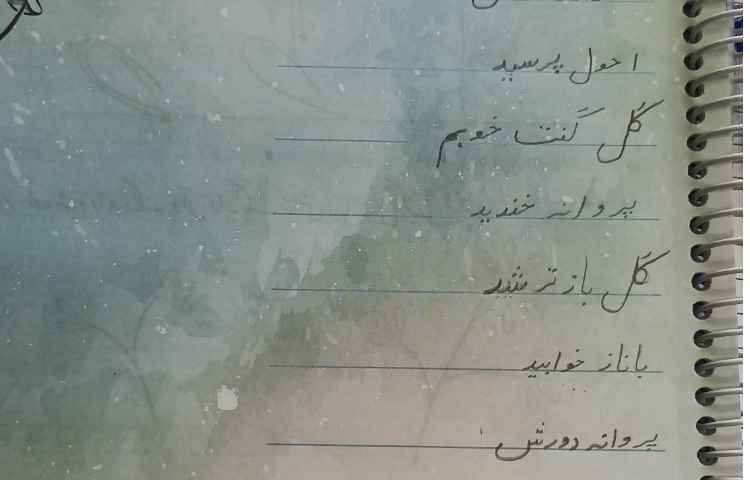 احول پرسید
گل گفت خوبم
پروانه خندید
گل باز تر شد
باناز خوابید
پروانه دورش